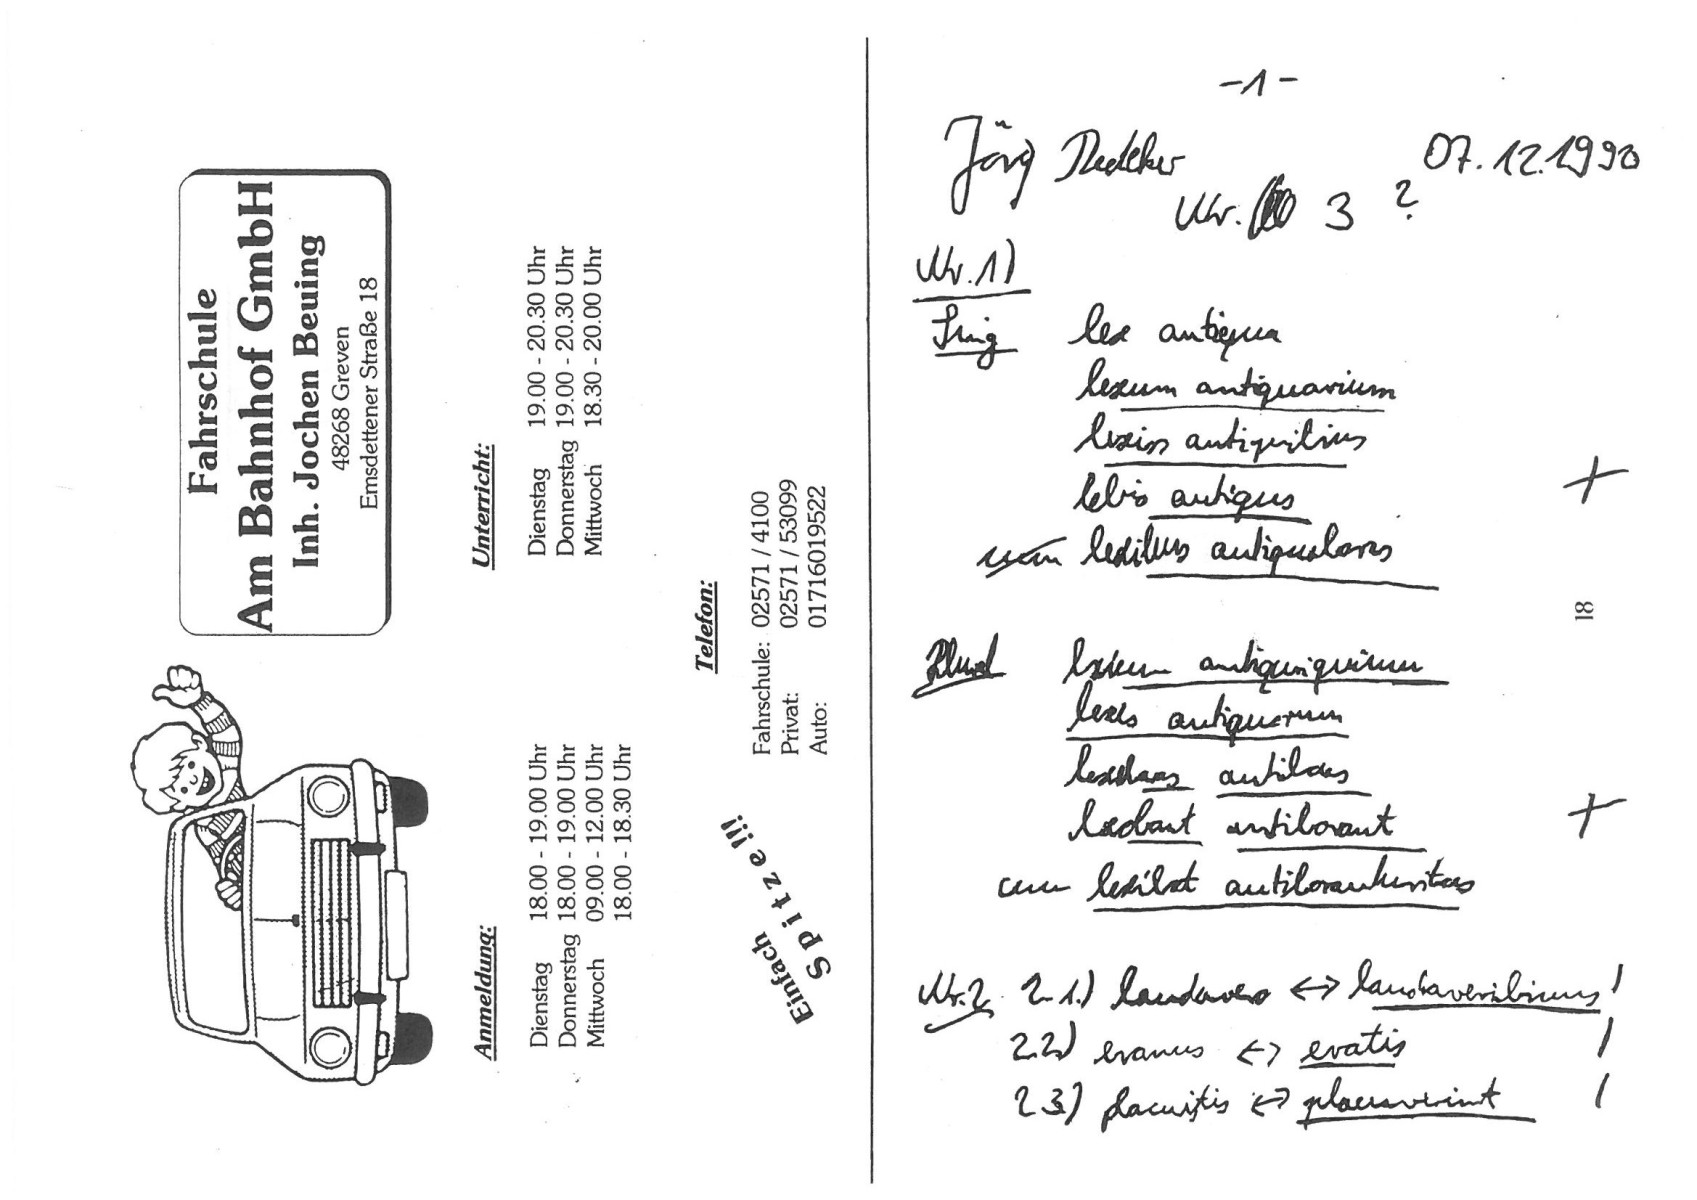 Fahrschule
Am Bahnhof GmbH
Inh. Jochen Beuing
48268 Greven
Emsdettener Straße 18
Anmeldung:
Dienstag 18.00 - 19.00 Uhr
Donnerstag 18.00 - 19.00 Uhr
Mittwoch 09.00 - 12.00 Uhr
18.00 - 18.30 Uhr
Unterricht:
Dienstag 19.00 - 20.30 Uhr
Donnerstag 19.00 - 20.30 Uhr
Mittwoch 18.30 - 20.00 Uhr
Telefon:
Fahrschule: 02571 / 4100
Privat: 02571 / 53099
Auto: 01716019522
Einfach
Spitze!!!
-1-
Jörg Redeker 07.12.1990
Nr. 3 ?
Nr. 1)
Sing lex antiqua
lexum antiquarium
antiquibius
lebis antiqus
lexibus
18
Plural
lexes antiquarum
lexebant antiborant
cum
Nr. 2 2.1.) laudavero <-> laudaveribimus !
2.2) eramus <-> eratis /
2.3) placuistis <-> /